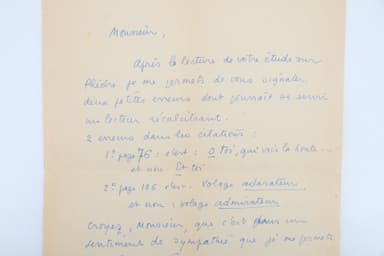 Monsieur,
Après la lecture de votre étude sur
Phèdre je me permets de vous signaler
deux petites erreurs dont pourrait se servir
un lecteur récalcitrant.
2 erreurs dans les citations :
1° page 76 : c'est : O toi, qui vois la honte...
et non : Et toi
2° page 106 c'est : Volage adorateur
et non : volage admirateur
Croyez, Monsieur, que c'est dans un
sentiment de sympathie que je me permets